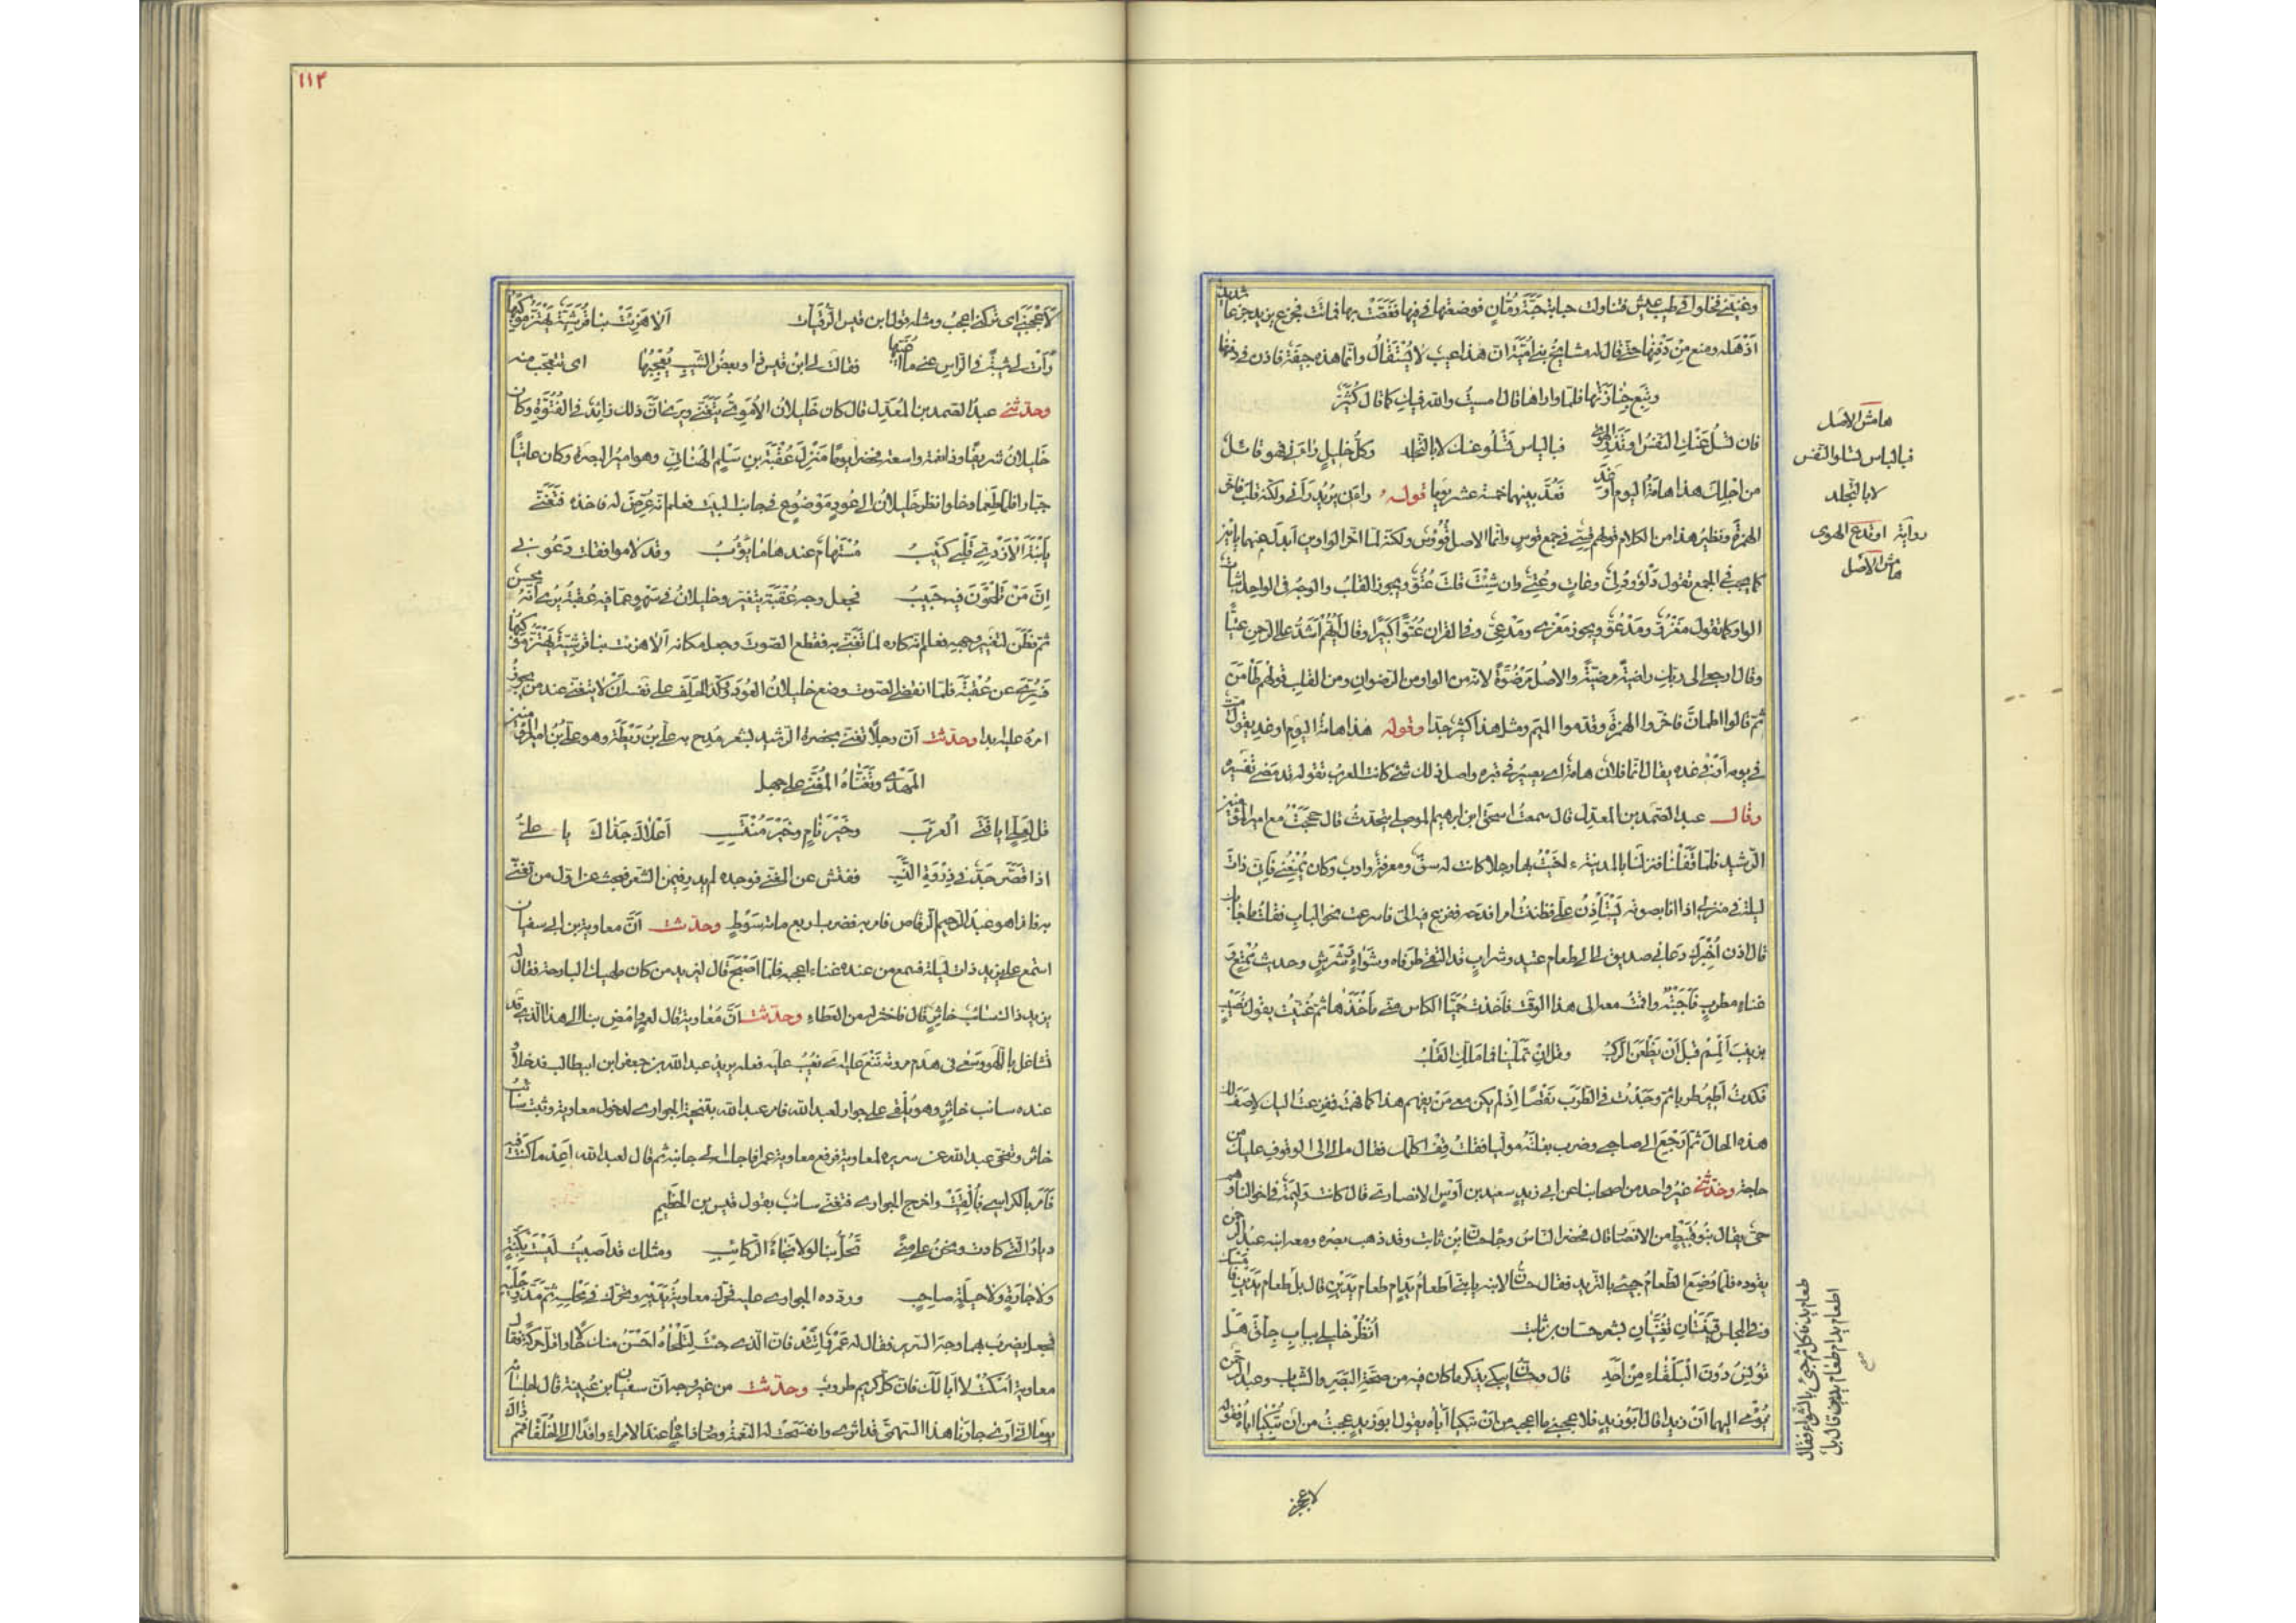 وغيبتى نخلو الى طيب عيش فتناولت حبابة حبة رمان فوضعتها فى فيها فغصّت بها فماتت فجزع يزيد جزعا شديدا
اذهله ومنع من دفنها حتى قال له مشايخ بنى امية ان هذا عيب لا يستقال وانما هذه جيفة فاذن فى دفنها
وتبع جنازتها فلما واراها قال امسيت والله فيك كما قال كثيّر
فان تسل عنك النفس او تدع الهوى فبالياس تسلو عنك لا بالتجلد وكل خليل راءنى فهو قائل
من اجلك هذا هامة اليوم او غد فعدّ بينهما خمسة عشر يوما قوله راءنى يريد رآنى ولكنه قلب فاخّر
الهمزة ونظير هذا من الكلام قولهم قسىّ فى جمع قوس وانما الاصل قووس ولكنه لما اخّر الواوين ابدل منهما يائين
كما يجب فى الجمع تقول دلو ودلىّ وعات وعتىّ وان شئت قلت عتوّ ويجوز القلب والوجه فى الواحد اثبات
الواو كما تقول مغزوّ ومدعوّ ويجوز مغزىّ ومدعىّ وفى القران عتوّا كبيرا وقال ايّهم اشدّ على الرحمن عتيّا
وقال ارجعى الى ربك راضية مرضية والاصل مرضوّة لانه من الواو من الرضوان ومن القلب قولهم طأمن
ثم قالوا اطمأنّ فاخّروا الهمزة وقدموا الميم ومثل هذا كثير جدا وقوله هذا هامة اليوم او غد يقول ميت
فى يومه او فى غده يقال انما فلان هامة اى يصير فى قبره واصل ذلك شىء كانت العرب تقوله قد مضى تفسيره
وقال عبد الصمد بن المعذل قال سمعت اسحق ابن ابرهيم الموصلى يتحدث قال حججت مع امير المؤمنين
الرشيد فلما قفلنا فنزلنا بالمدينة آخيت بها رجلا كانت له سنّ ومعرفة وادب وكان يمتعنى فانى ذات
ليلة فى منزلى اذا انا بصوته يستأذن علىّ فظننت امرا فدحه ففزع فيه الىّ فاسرعت نحو الباب فقلت ما جاء بك
قال اذن اخبرك دعانى صديق لى الى طعام عتيد وشراب قد التقى طرفاه وشواء رشراش وحديث ممتع و
غناء مطرب فاجبته واقمت معه الى هذا الوقت فاخذت حميّا الكاس منى مأخذها ثم غنيت بقول نصيب
بزينب المم قبل ان يظعن الركب وقل ان تملّينا فما ملّك القلب
فكدت اطير طربا ثم وجدت فى الطرب نقصا اذ لم يكن معى من يفهم هذا كما فهمته ففزعت اليك لاصف لك
هذه الحال ثم ارجع الى صاحبى وضرب بغلته موليا فقلت قف اكلمك فقال ما لى الى الوقوف عليك من
حاجة وحدثنى غير واحد من اصحابنا عن ابى زيد سعيد بن اوس الانصارى قال كانت وليمة فى اخوالنا وهم
حى يقال بنو نبيط من الانصار قال فحضر الناس وجاء حسان بن ثابت وقد ذهب بصره ومعه ابنه عبد الرحمن
يقوده فلما وضع الطعام جىء بالثريد فقال حسان لابنه يا بنىّ اطعام يد ام طعام يدين قال بل طعام يد
وفى المجلس قينتان تغنيان بشعر حسان بن ثابت انظر خليلى بباب جلّق هل
تونس دون البلقاء من احد قال وحسان يبكى يذكر ما كان فيه من صحة البصر والشباب وعبد الرحمن
يومى اليهما ان زيدا قال ابو زيد فلاعجبنى ما اعجبه من ان تبكيا اباه يقول ابو زيد عجبت من ان تبكيا اباه فقوله
هامش الاصل
فبالياس تسلو النفس
لا بالتجلد
رواية او تدع الهوى
هامش الاصل
طعام يد فاكل ثم جىء بالشواء فقال
اطعام يد ام طعام يدين قال بل
صح
لاعجبنى
١١٣
لاعجبنى اى تركنى اعجب ومثله قول ابن قيس الرقيات الا هزئت بنا قرشية يهتز موكبها
رأت لى شيبة فى الراس عنى ما اغيّبها فقالت لى ابن قيس ذا وبعض الشيب يعجبها اى تتعجب منه
وحدثنى عبد الصمد بن المعذل قال كان خليلان الاموى يتغنى ويرى ان ذلك زائد فى الفتوة وكان
خليلان شريفا وذا نعمة واسعة فحضر يوما منزل عقبة بن سلم الهنائى وهو امير البصرة وكان عاتيا
جبارا فلما طعما وخلوا نظر خليلان الى عود موضوع فى جانب البيت فعلم انه عرّض له فاخذه فتغنى
يا بنة الازدى قلبى كئيب مستهام عندها ما يؤوب وقد لاموا فقلت دعونى
ان من تلحون فيه حبيب فجعل وجه عقبة يتغير وخليلان فى سهو عما فيه عقبة يرى انه محسن
ثم فطن لتغير وجهه فعلم انه كاره لما تغنى به فقطع الصوت وجعل مكانه الا هزئت بنا قرشية يهتز موكبها
فسرّى عن عقبة فلما انقضى الصوت وضع خليلان العود ووكّد الحلف على نفسه ان لا يتغنى عند من يجوز
امره عليه ابدا وحدثت ان رجلا تغنى بحضرة الرشيد بشعر مدح به على بن ريطة وهو على بن امير المؤمنين
المهدى وتغناه المغنى على جهل
قل لعلى ايا فتى العرب وخير نام وخير منتسب اعلاك جداك يا على
اذا قصّر جدّ فى ذروة النسب ففتش عن المغنى فوجده لم يدر فيمن الشعر فبحث عن اول من تغنى
به فاذا هو عبد الرحيم الرقاص فامر به فضرب اربع مائة سوط وحدثت ان معاوية بن ابى سفيان
استمع على يزيد ذات ليلة فسمع من عنده غناء اعجبه فلما اصبح قال ليزيد من كان ملهيك البارحة فقال له
يزيد ذاك سائب خاثر قال فاخثر له من العطاء وحدثت ان معاوية قال لعمرو امض بنا الى هذا الذى قد
تشاغل باللهو وسعى فى هدم مروته ننعى عليه اى نعيب عليه فعله يريد عبد الله بن جعفر ابن ابيطالب فدخلا و
عنده سائب خاثر وهو يلقى على جوار لعبد الله فامر عبد الله بتنحية الجوارى لدخول معاوية وثبت سائب
خاثر وتنحى عبد الله عن سريره لمعاوية فرفع معاوية عمرا فاجلسه الى جانبه ثم قال لعبد الله اعد ما كنت فيه
فامر بالكراسى فالقيت واخرج الجوارى فتغنى سائب بقول قيس بن الخطيم
ديار التى كادت ونحن على منى تحلّ بنا لولا نجاء الركائب ومثلك قد اصبيت ليست بكنّة
ولا جارة ولا حليلة صاحب وردده الجوارى عليه فحرّك معاوية يديه وتحرك فى مجلسه ثم مدّ رجليه
فجعل يضرب بهما وجه السرير فقال له عمرو اتئد فان الذى جئت لتلحاه احسن منك حالا واقل حركة فقال
معاوية اسكت لا ابا لك فان كل كريم طروب وحدثت من غير وجه ان سفيان بن عيينة قال لجلسائه
يوما انى ارى جارنا هذا السهمى قد اثرى وانفسحت له النعمة وصار ذا جاه عند الامراء وافدا الى الخلفاء فمم ذاك